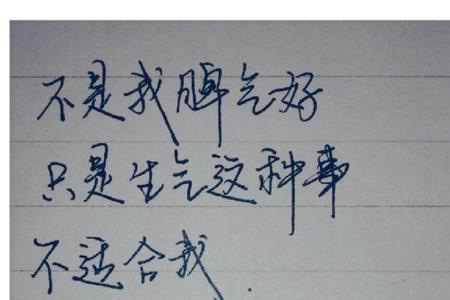 不是我脾气好
只是生气这种事
不适合我.